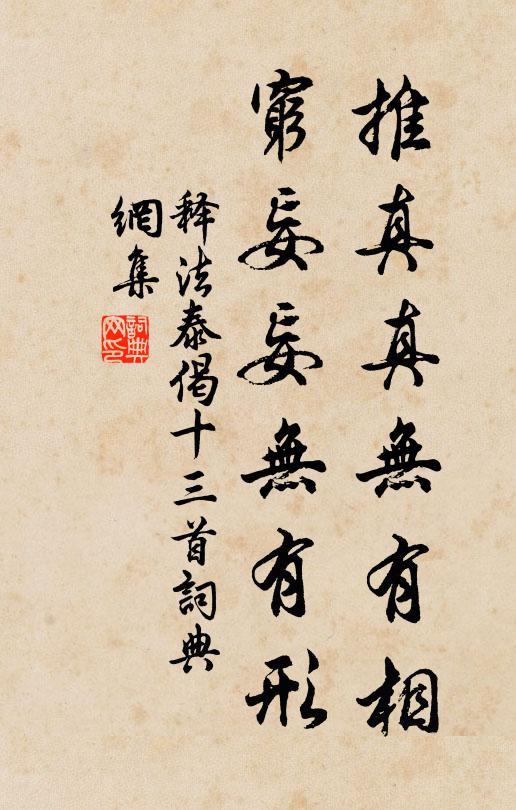 推真真無有相
窮妄妄無有形
释法泰偈十三首詞典
網集
詞典
网印